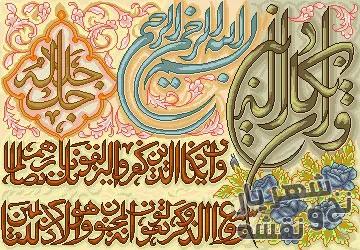 بسم الله الرحمن الرحيم
جل جلاله
وان يكاد
وان يكاد الذين كفروا ليزلقونك بابصارهم لما
سمعوا الذكر ويقولون انه لمجنون وما هو الا ذكر للعالمين
شهریار
نخ و نقشه